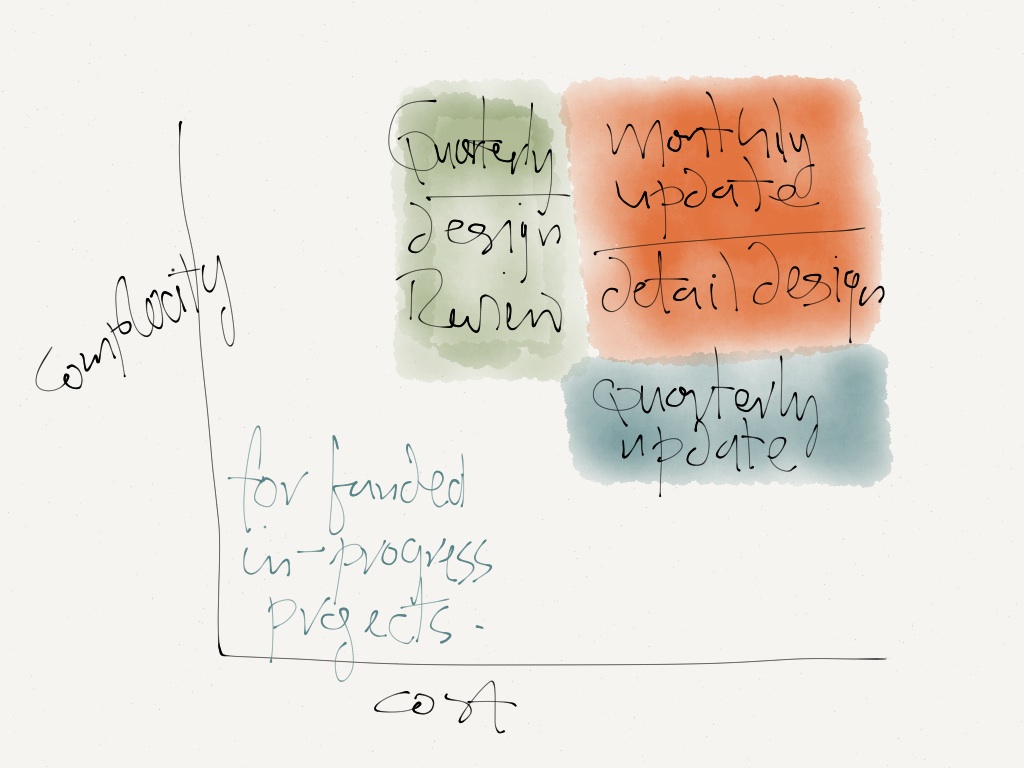 Quarterly
design
Review
Monthly
update
detail design
Quarterly
update
Complexity
for funded
in-progress
projects.
cost